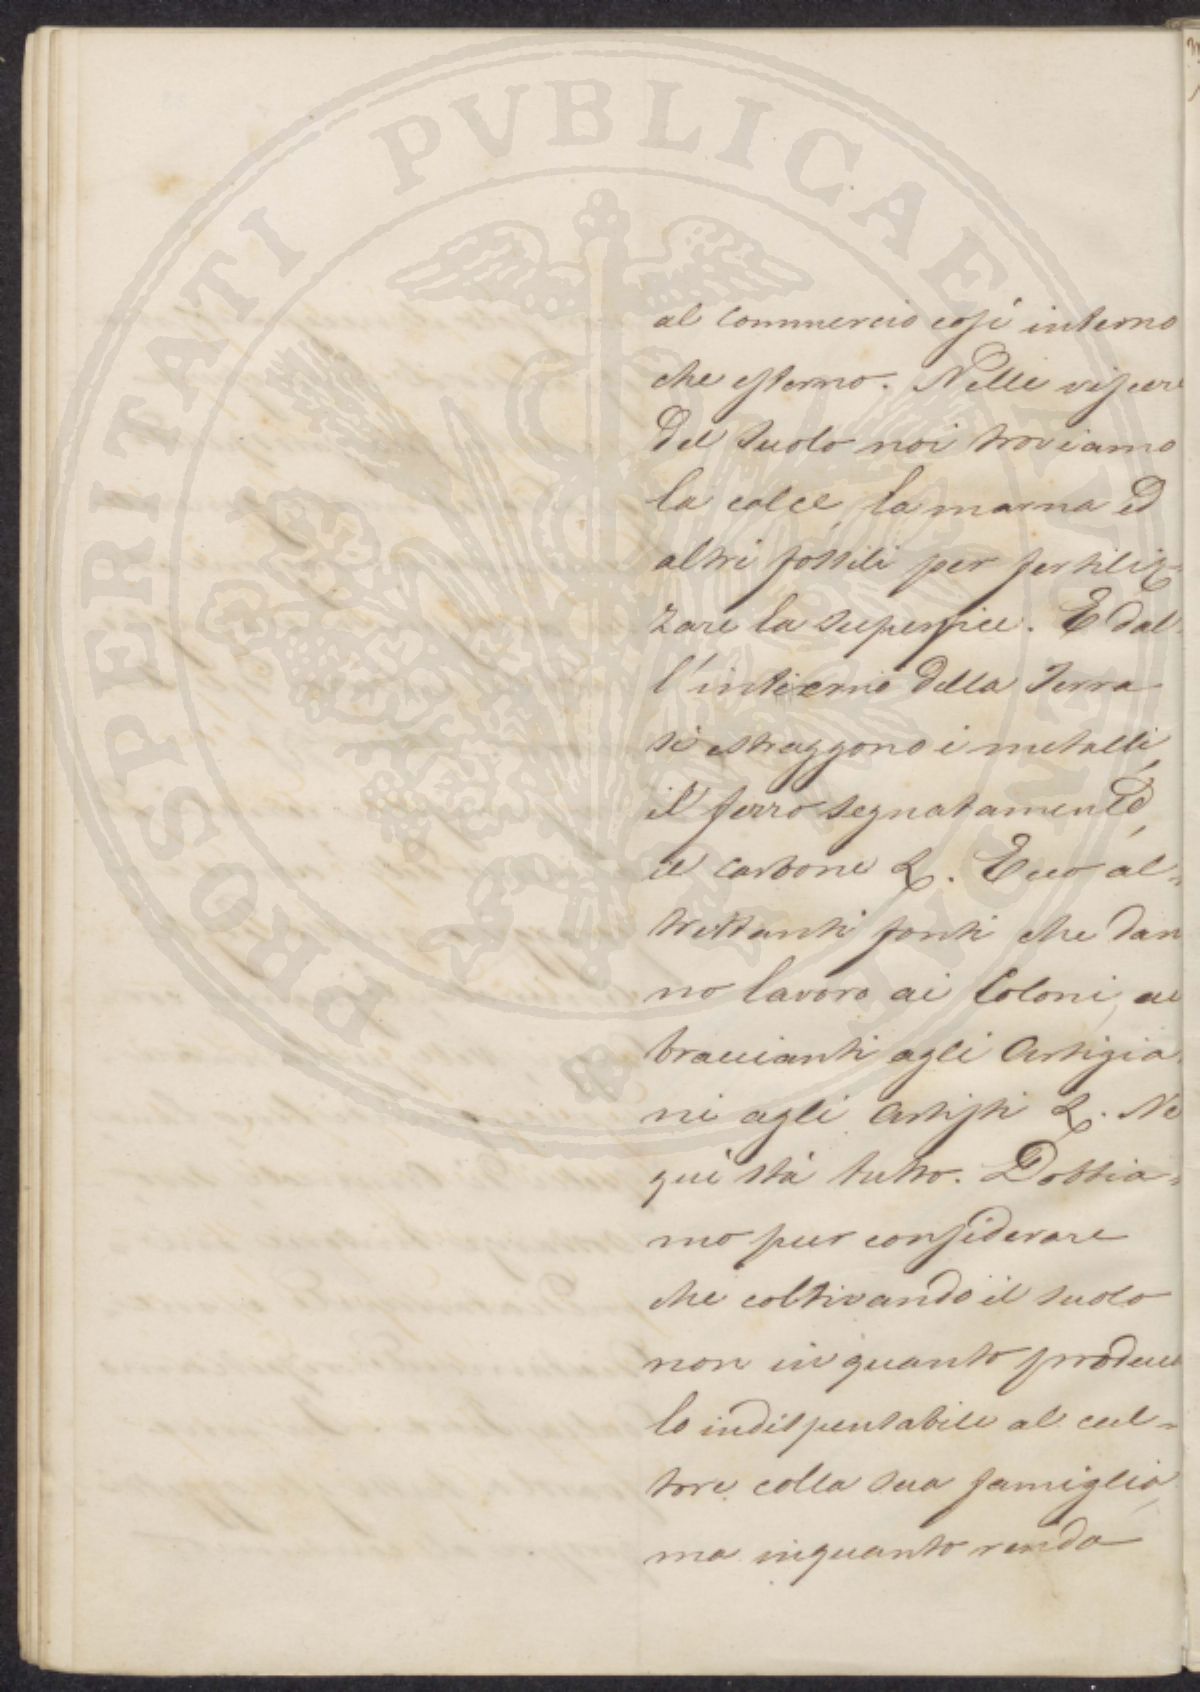 PROSPERITATI PVBLICAE AVGENDAE
al Commercio così interno
che esterno. Nelle viscere
del suolo noi troviamo
la calce, la marna ed
altri fossili per fertiliz=
zare la superficie. E dal=
l'interno della Terra
si estraggono i metalli,
il ferro segnatamente,
il carbone &. Ecco al=
trettanti fonti che dan
no lavoro ai Coloni, ai
braccianti agli Artigia=
ni agli Artisti &. Ne
quì stà tutto. Dobbia=
mo pur considerare
che coltivando il suolo
non in quanto produce
lo indispensabile al cul=
tore colla sua famiglia,
ma inquanto renda